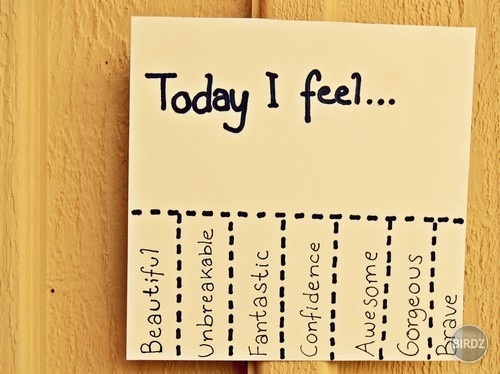 Today I feel...
Beautiful
Unbreakable
Fantastic
Confidence
Awesome
Gorgeous
Brave
BIRDZ